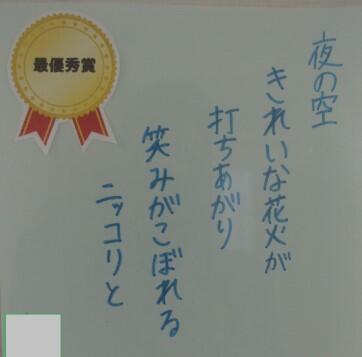 最優秀賞
夜の空
きれいな花火が
打ちあがり
笑みがこぼれる
ニッコリと